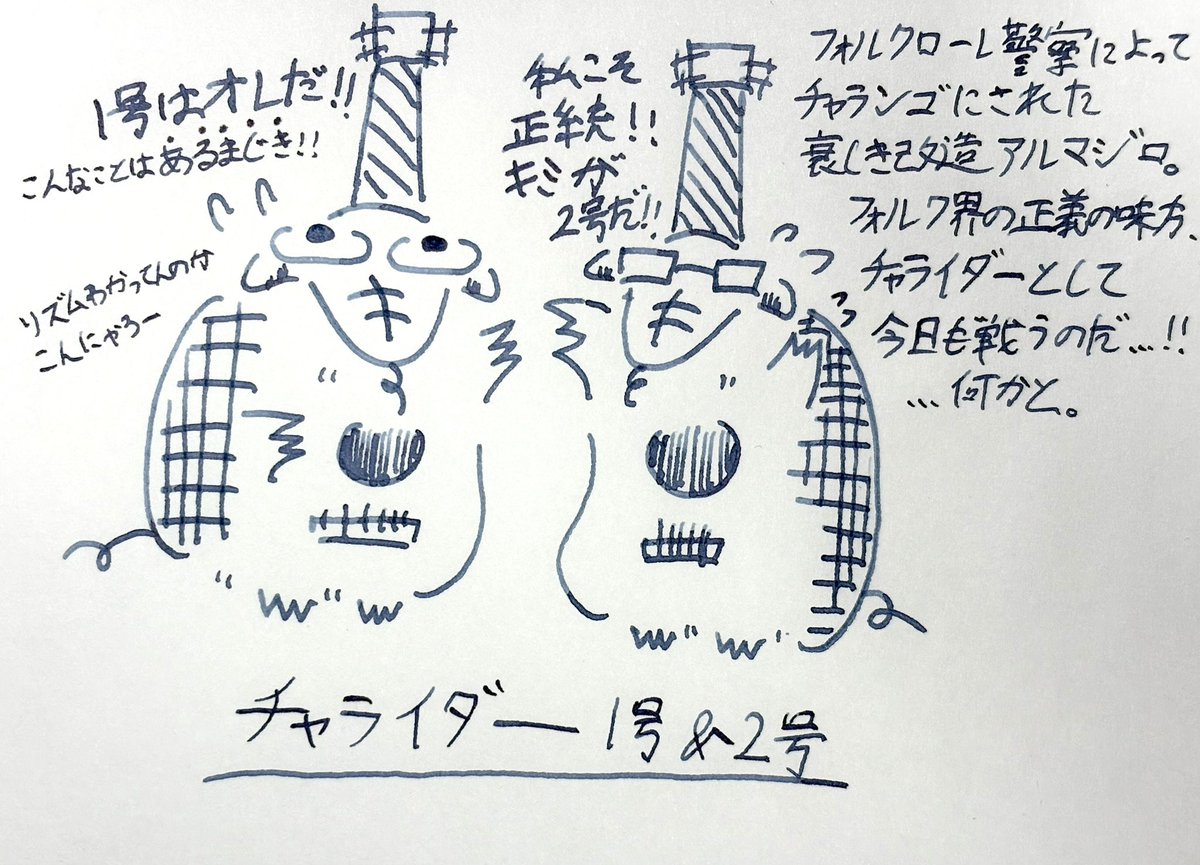 1号はオレだ!!
こんなことはあるまじき!!
リズムわかってんのか
こんにゃろー
私こそ
正統!!
キミが
2号だ!!
フォルクローレ警察によって
チャランゴにされた
哀しき改造アルマジロ。
フォルク界の正義の味方、
チャライダーとして
今日も戦うのだ…!!
…何かと。
チャライダー 1号&2号